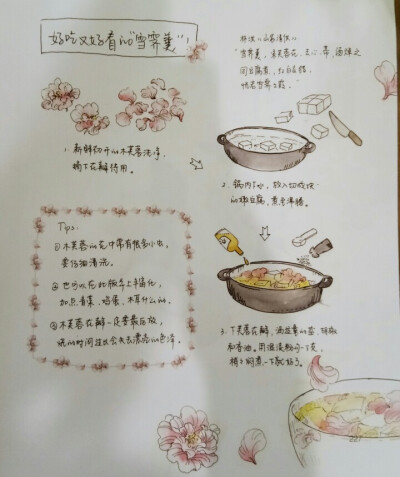 好吃又好看的“雪霁羹”!
林洪《山家清供》
“雪霁羹,采芙蓉花,去心、蒂,汤焯之
同豆腐煮,红白交错,
恍若雪霁之霞。”
1. 新鲜初开的木芙蓉洗净,
摘下花瓣待用。
2. 锅内下水,放入切成块
的嫩豆腐,煮至沸腾。
Tips:
①木芙蓉的花中常有很多小虫,
要仔细清洗。
②也可以在此版本上丰富化,
加点青菜、鸡蛋、木耳什么的。
③木芙蓉花瓣一定要最后放,
烧的时间过长会失去漂亮的色泽。
3. 下芙蓉花瓣,滴适量的盐、胡椒
和香油。用淀粉勾一下芡,
稍微煮一下就好了。